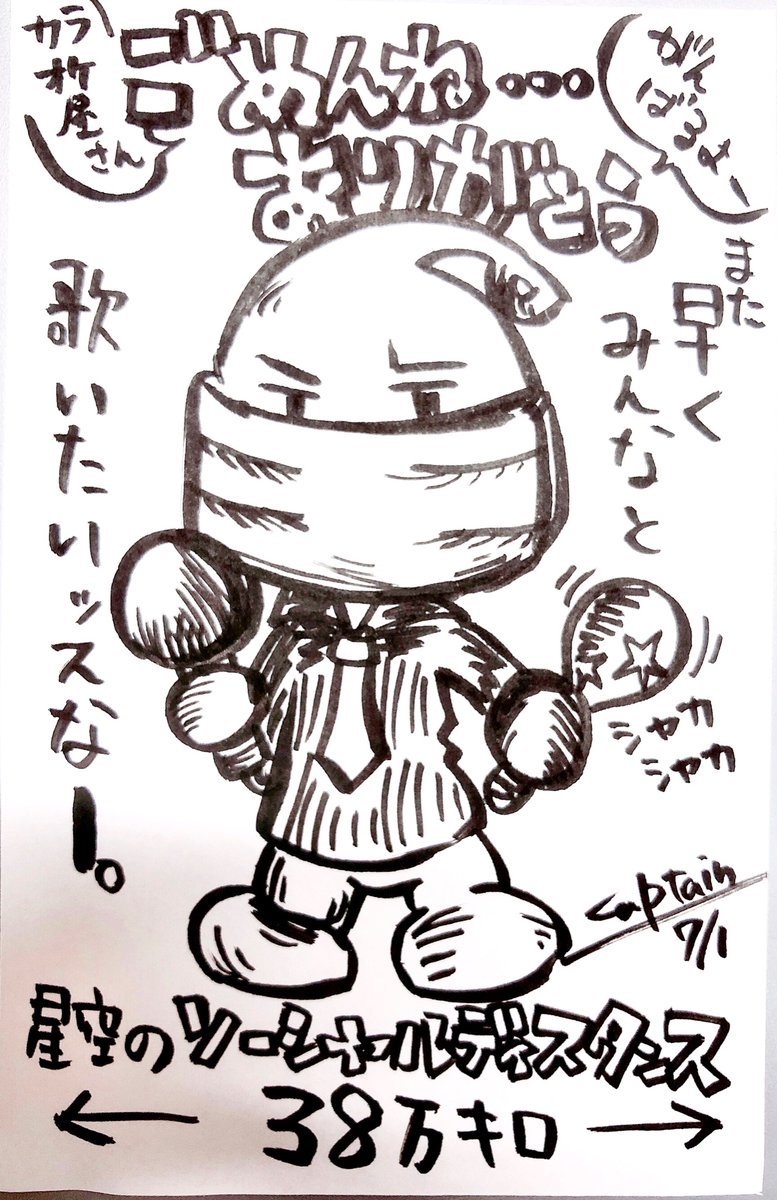 カラオケ屋さん
ごめんね...
ありがとう
がんばるよー
また早く
みんなと
歌いたいッスなー。
シャカ
シャカ
captain
7/1
星空のソーシャルディスタンス
← 38万キロ →